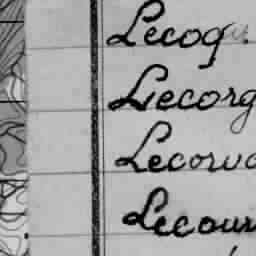 Lecoqu.
Lecorg
Lecorva
Lecour